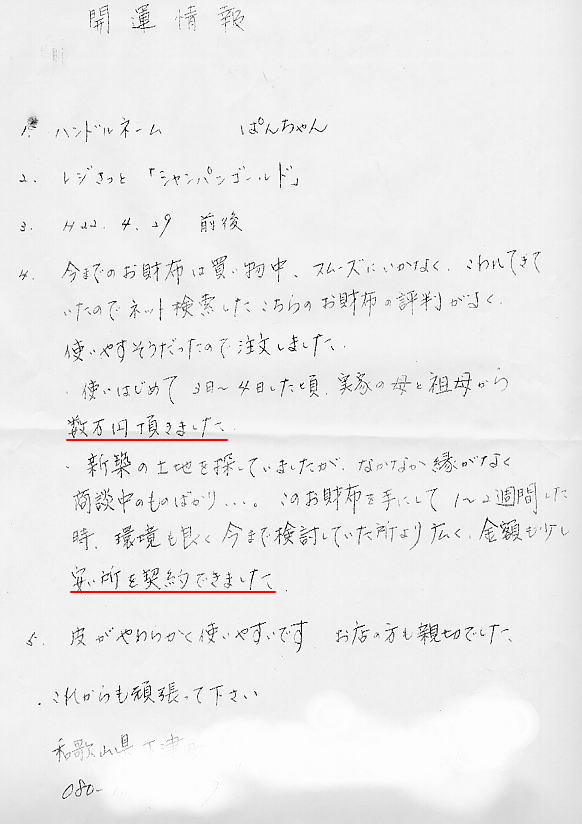 開運情報
1. ハンドルネーム ぱんちゃん
2. レジさっと 「シャンパンゴールド」
3. H22.4.29 前後
4. 今までのお財布は買い物中、スムーズにいかなく、こわれてきて
いたのでネット検索したこちらのお財布の評判がよく、
使いやすそうだったので注文しました、
・使いはじめて 3日〜4日した頃、実家の母と祖母から
数万円頂きました。
・新築の土地を探していましたが、なかなか縁がなく
商談中のものばかり...。このお財布を手にして 1〜2週間した
時、環境も良く今まで検討していた所より広く、金額も少し
安い所を契約できました。
5. 皮がやわらかく使いやすいです お店の方も親切でした、
・これからも頑張って下さい
和歌山県
080-